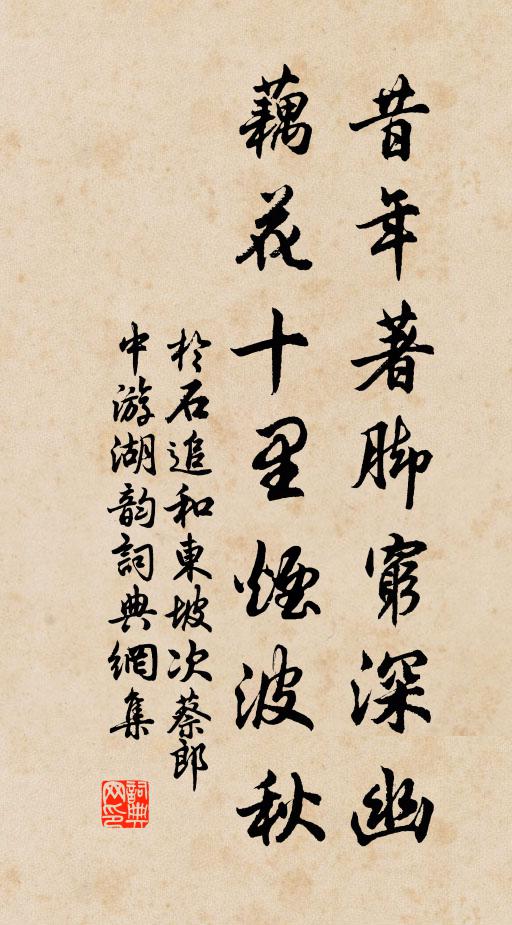 昔年著脚窮深幽
藕花十里煙波秋
於石追和東坡次蔡郎
中游湖韵詞典網集
詞典网印